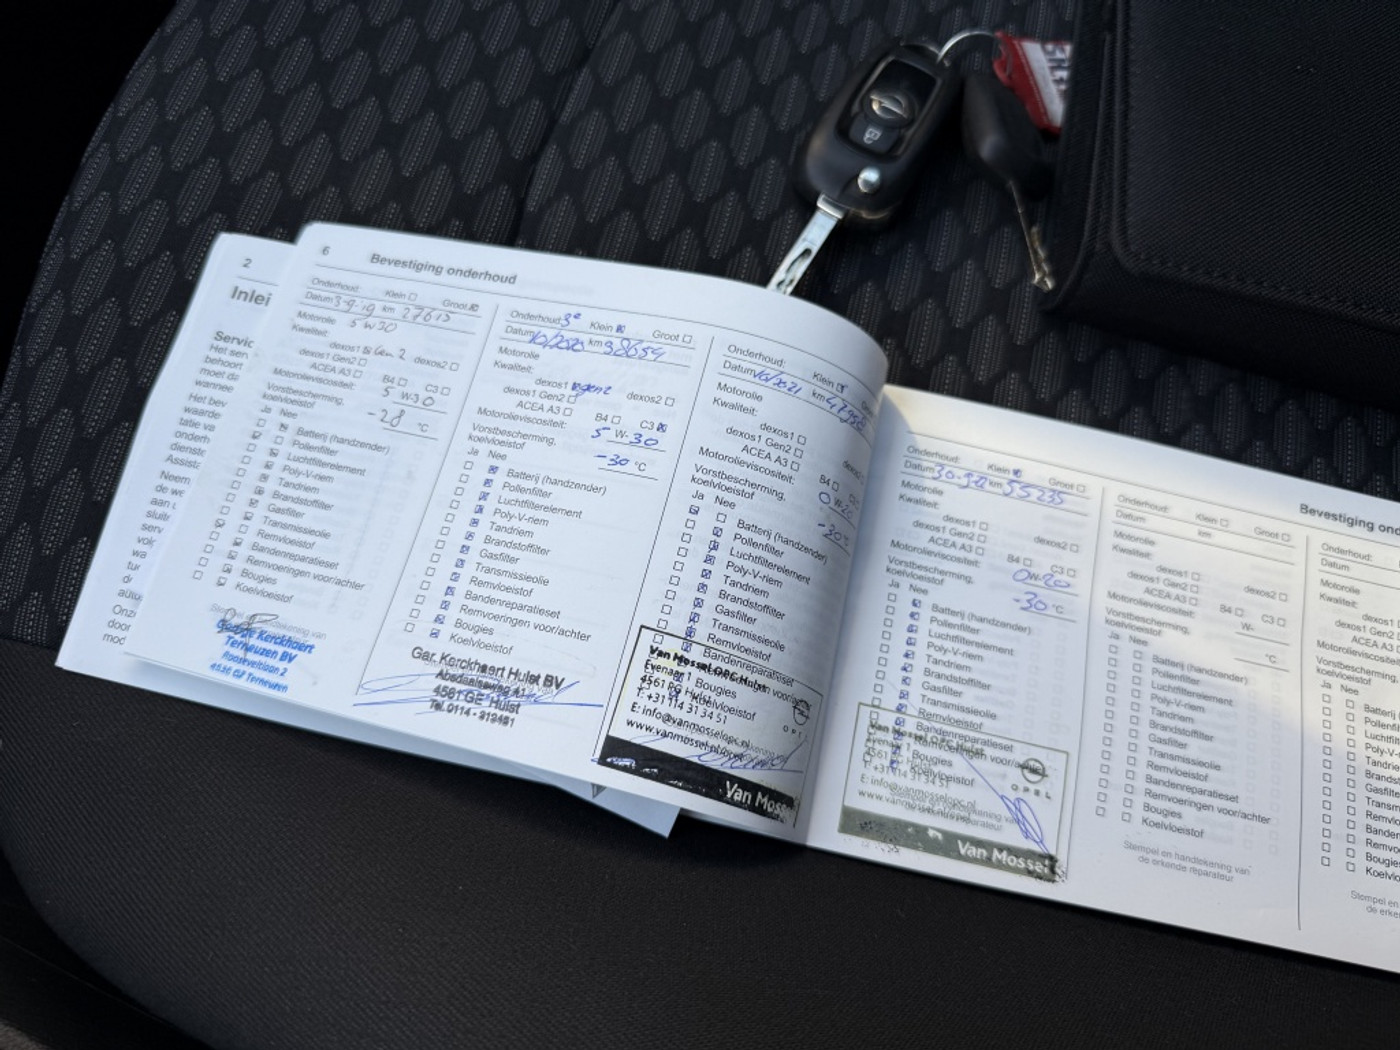 2
Inlei
Servic
Het sen
behoort
moet da
wannee
Het bev
waarde
tatie va
onderh
dienste
Assista
Neem
de we
aan
sluit
serv
wa
Onzi
door
mod
6
Bevestiging onderhoud
Onderhoud: Klein Groot
Datum 3-9-19 km 27615
Motorolie 5W30
Kwaliteit:
dexos1 Gen 2 dexos2
dexos1 Gen2
ACEA A3 B4 C3
Motorolieviscositeit: 5 W-30
Vorstbescherming,
koelvloeistof -28 °C
Ja Nee
Batterij (handzender)
Pollenfilter
Luchtfilterelement
Poly-V-riem
Tandriem
Brandstoffilter
Gasfilter
Transmissieolie
Remvloeistof
Bandenreparatieset
Remvoeringen voor/achter
Bougies
Koelvloeistof
George Kerckhaert
Terneuzen BV
Rooseveltlaan 2
Terneuzen
Onderhoud: 3e Klein Groot
Datum 10/2020 km 38659
Motorolie
Kwaliteit:
dexos1 gen2 dexos2
dexos1 Gen2
ACEA A3 B4 C3
Motorolieviscositeit: 5 W-30
Vorstbescherming,
koelvloeistof -30 °C
Ja Nee
Batterij (handzender)
Pollenfilter
Luchtfilterelement
Poly-V-riem
Tandriem
Brandstoffilter
Gasfilter
Transmissieolie
Remvloeistof
Bandenreparatieset
Remvoeringen voor/achter
Bougies
Koelvloeistof
Gar. Kerckhaert Hulst BV
Absdaalseweg 41
4561 GE Hulst
Tel. 0114 -
Onderhoud: Klein
Datum 10/2021 km
Motorolie
Kwaliteit:
dexos1
dexos1 Gen2
ACEA A3 B4
Motorolieviscositeit: 0 W-20
Vorstbescherming,
koelvloeistof
Ja Nee
Batterij (handzender)
Pollenfilter
Luchtfilterelement
Poly-V-riem
Tandriem
Brandstoffilter
Gasfilter
Transmissieolie
Remvloeistof
Bandenreparatieset
Bougies
Koelvloeistof
Van Mossel OPC Hulst
4561 Hulst
T: +31 114 31 34 51
E: info@vanmosselopc.nl
OPEL
Van Moss
Onderhoud: Klein Groot
Datum km 55235
Motorolie
Kwaliteit:
dexos1 dexos2
dexos1 Gen2
ACEA A3 B4 C3
Motorolieviscositeit: 0W-20
Vorstbescherming,
koelvloeistof -30 °C
Ja Nee
Batterij (handzender)
Pollenfilter
Luchtfilterelement
Poly-V-riem
Tandriem
Brandstoffilter
Gasfilter
Transmissieolie
Remvloeistof
Bandenreparatieset
Remvoeringen voor/achter
Bougies
Koelvloeistof
Van Mossel OPC Hulst
T: +31 114 31 34 51
E: info@vanmosselopc.nl
OPEL
Van Mossel
Bevestiging ond
Onderhoud: Klein Groot
Datum km
Motorolie
Kwaliteit:
dexos1 dexos2
dexos1 Gen2
ACEA A3 B4 C3
Motorolieviscositeit: W-
Vorstbescherming,
koelvloeistof °C
Ja Nee
Batterij (handzender)
Pollenfilter
Luchtfilterelement
Poly-V-riem
Tandriem
Brandstoffilter
Gasfilter
Transmissieolie
Remvloeistof
Bandenreparatieset
Remvoeringen voor/achter
Bougies
Koelvloeistof
Stempel en handtekening van
de erkende reparateur
Onderhoud:
Datum
Motorolie
Kwaliteit:
dexos1
dexos1 Gen
ACEA A3
Motorolieviscosit
Vorstbescherming
koelvloeistof
Ja Nee
Batterij (
Pollenfil
Luchtfilt
Poly-V-
Tandrie
Brands
Gasfilte
Transm
Remvlo
Banden
Remvo
Bougie
Koelvlo
Stempel en
de erke